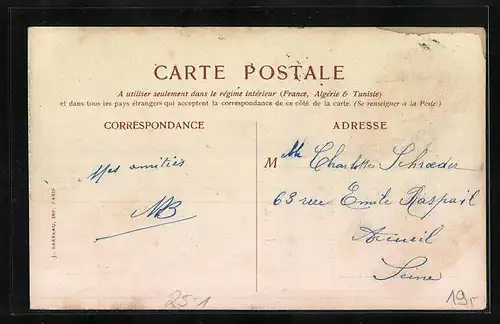 CARTE POSTALE
A utiliser seulement dans le régime intérieur (France, Algérie & Tunisie)
et dans tous les pays étrangers qui acceptent la correspondance de ce côté de la carte. (Se renseigner à la Poste)
CORRESPONDANCE
ADRESSE
Mes amitiés
MB
M lle Charlotte Schrader
63 rue Emile Raspail
Arcueil
Seine
J. BARREAU, IMP. PARIS
25-1
19,-